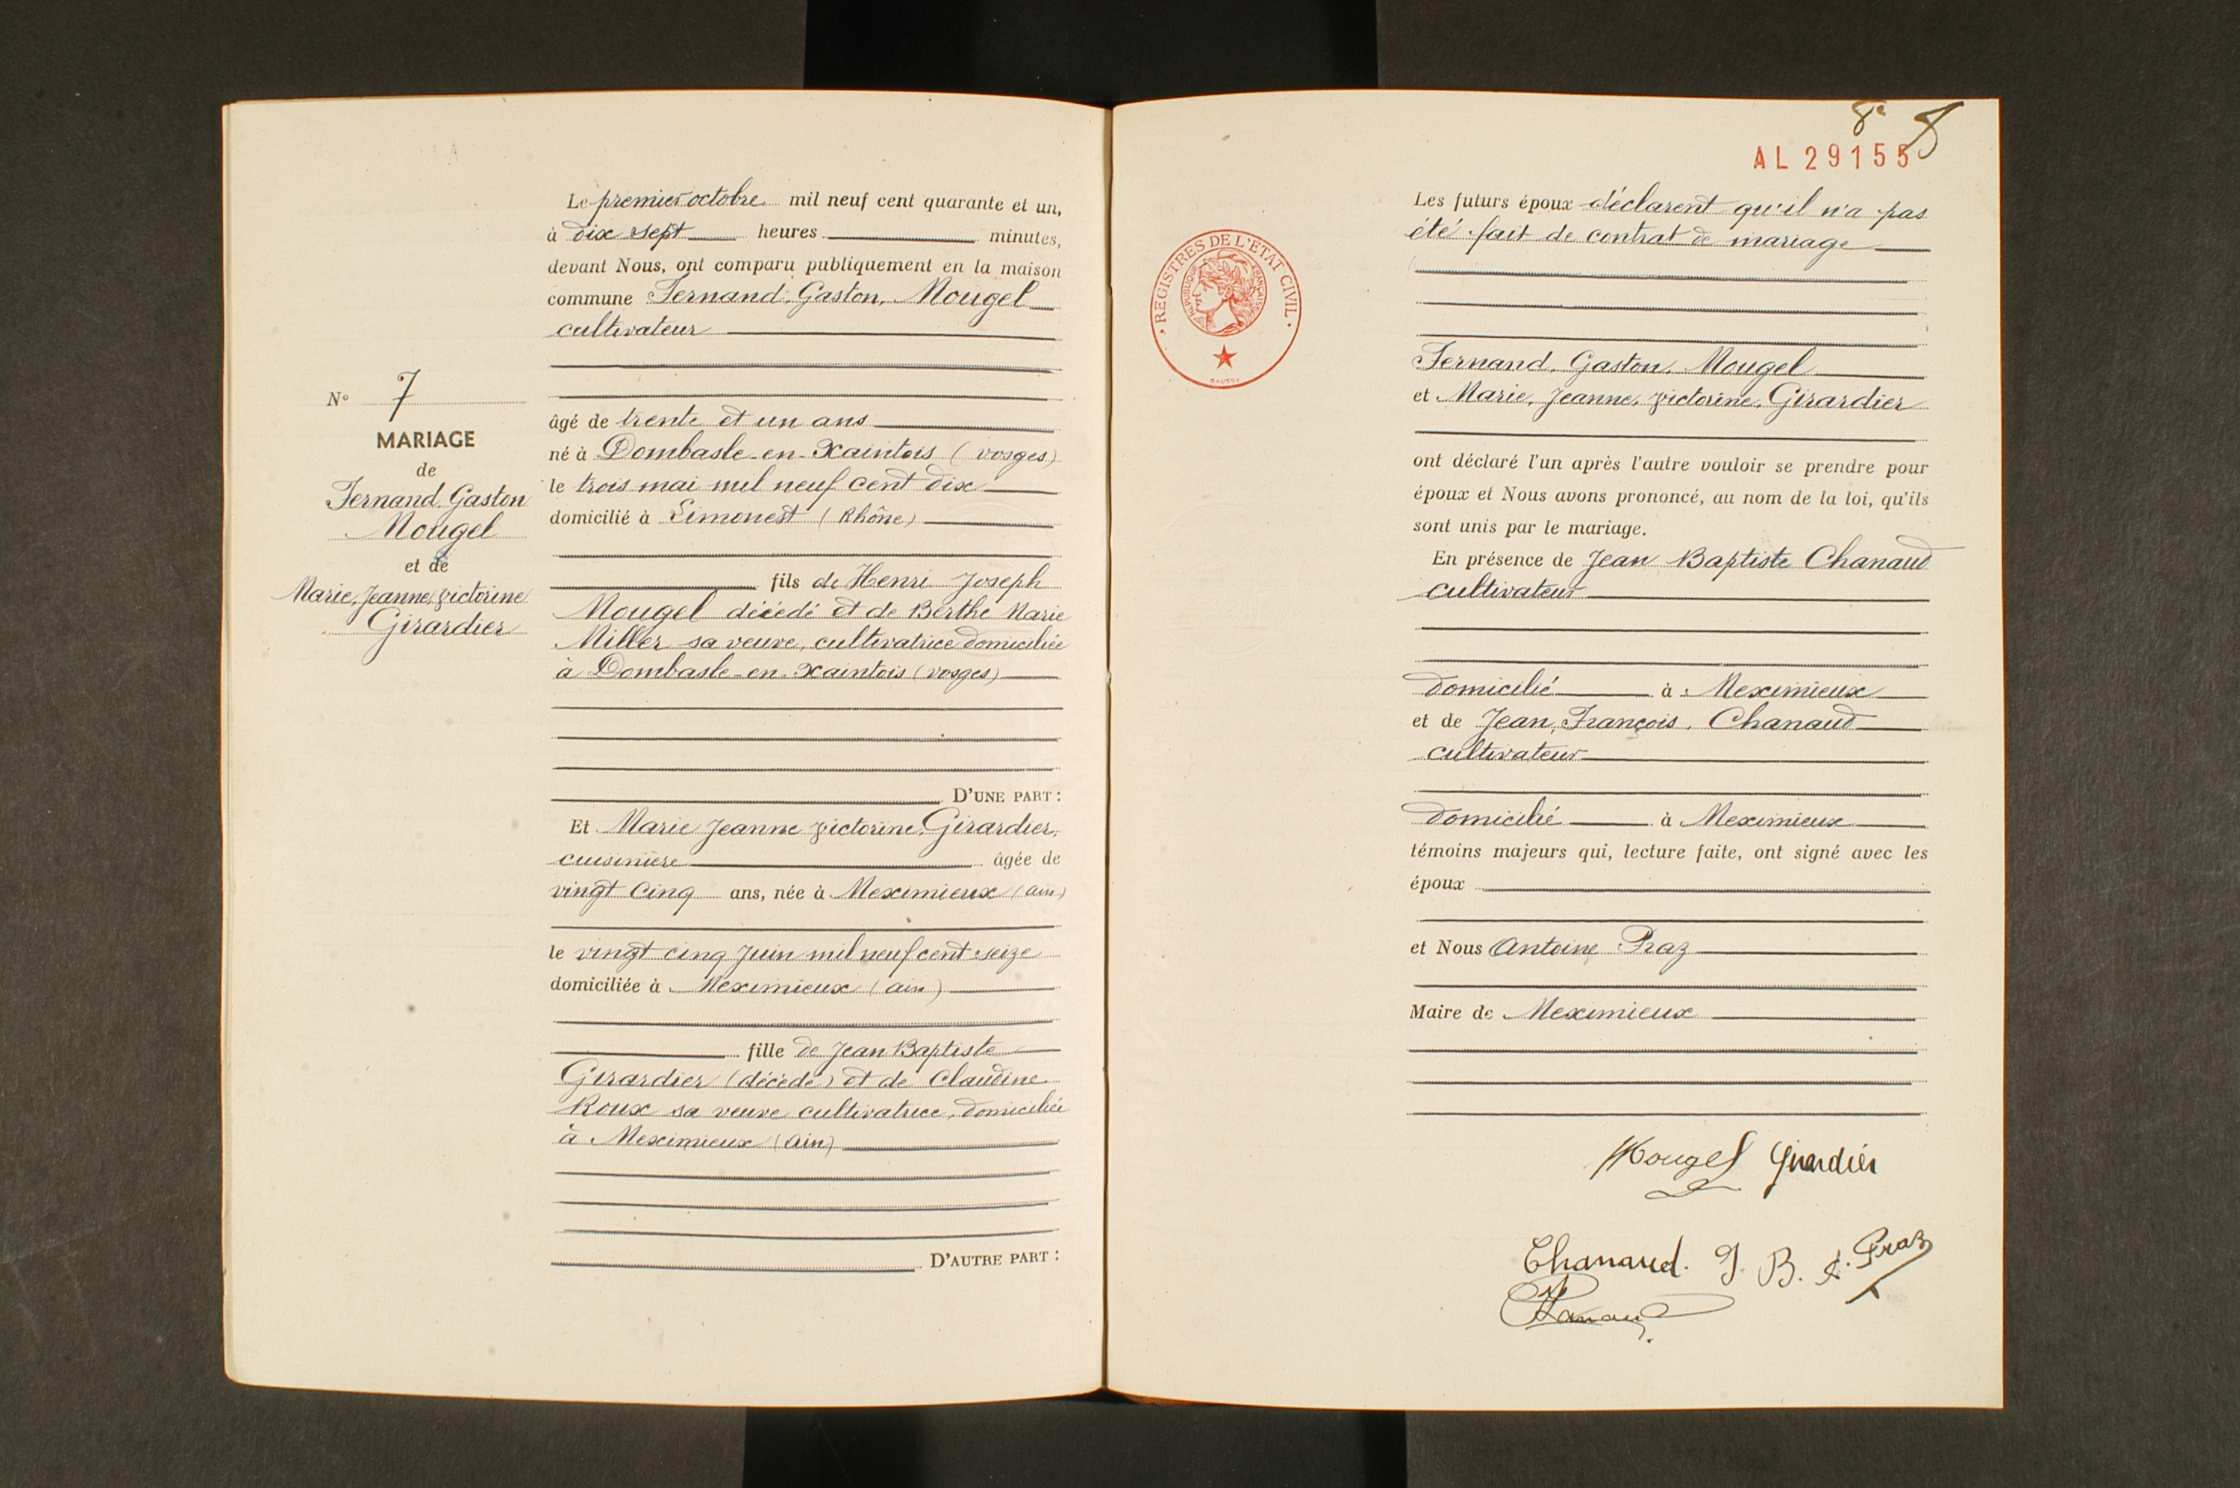 Le premier octobre mil neuf cent quarante et un,
à dix sept heures minutes,
devant Nous, ont comparu publiquement en la maison
commune Fernand, Gaston, Mougel
cultivateur
N° 7
MARIAGE
de
Fernand, Gaston
Mougel
et de
Marie, Jeanne, Victorine
Girardier
âgé de trente et un ans
né à Dombasle-en-Xaintois (Vosges)
le trois mai mil neuf cent dix
domicilié à Limonest (Rhône)
fils de Henri Joseph
Mougel décédé et de Berthe Marie
Miller sa veuve, cultivatrice domiciliée
à Dombasle-en-Xaintois (Vosges)
D'UNE PART :
Et Marie Jeanne Victorine, Girardier,
cuisinière âgée de
vingt cinq ans, née à Meximieux (ain)
le vingt cinq Juin mil neuf cent seize
domiciliée à Meximieux (ain)
fille de Jean Baptiste
Girardier (décédé) et de Claudine
Roux sa veuve cultivatrice, domiciliée
à Meximieux (Ain)
D'AUTRE PART :
8e 8
AL 29155
REGISTRES DE L'ETAT CIVIL
REPUBLIQUE FRANÇAISE
Les futurs époux déclarent qu'il n'a pas
été fait de contrat de mariage
Fernand, Gaston, Mougel
et Marie, Jeanne, Victorine, Girardier
ont déclaré l'un après l'autre vouloir se prendre pour
époux et Nous avons prononcé, au nom de la loi, qu'ils
sont unis par le mariage.
En présence de Jean Baptiste Chanaud
cultivateur
domicilié à Meximieux
et de Jean, François, Chanaud
cultivateur
domicilié à Meximieux
témoins majeurs qui, lecture faite, ont signé avec les
époux
et Nous Antoine Praz
Maire de Meximieux
Mougel Girardier
Chanaud. J. B. A. Praz
Chanaud